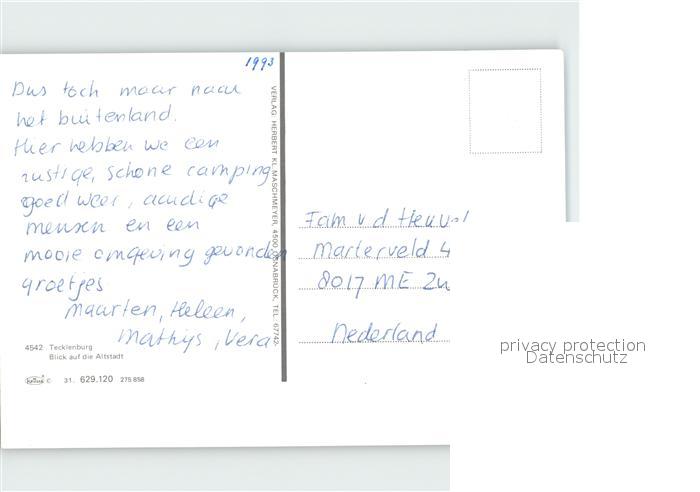 1993
Dus toch maar naar
het buitenland.
Hier hebben we een
rustige, schone camping
goed weer, aardige
mensen en een
mooie omgeving gevonden
groetjes
Maarten, Heleen,
Mathijs, Vera
4542 Tecklenburg
Blick auf die Altstadt
Krüger © 31. 629.120 275 858
VERLAG: HERBERT KL. MASCHMEYER, 4500 OSNABRÜCK, TEL. 67742
Fam v d Heuvel
Marterveld 4
8017 ME Zw
Nederland
privacy protection
Datenschutz